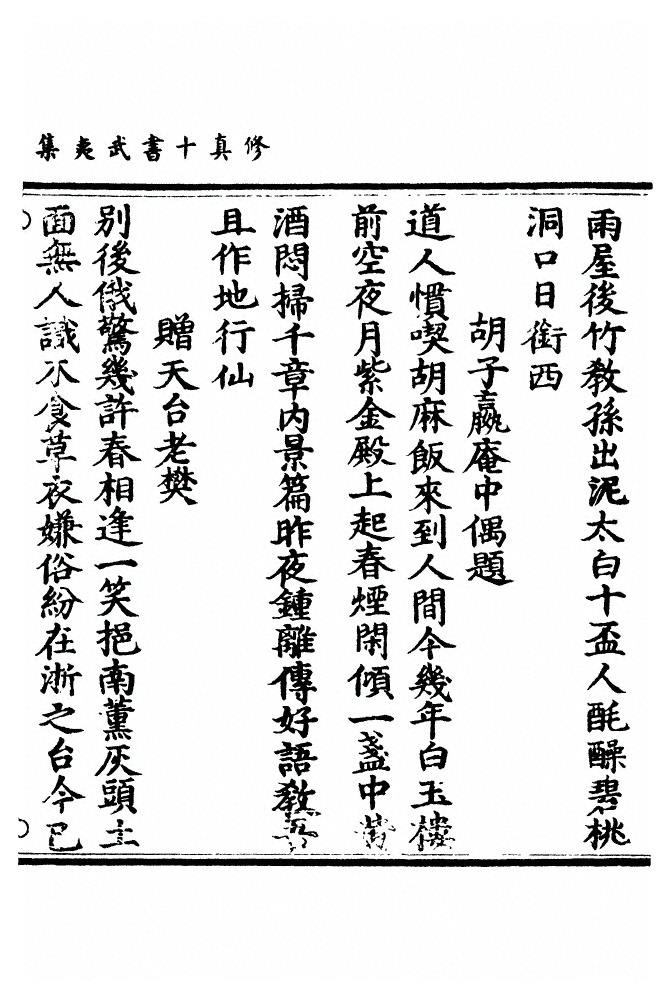 修真十書武夷集
雨屋後竹教孫出泥太白十盃人酕醄碧桃
洞口日銜西
胡子嬴庵中偶題
道人慣喫胡麻飯來到人間今幾年白玉樓
前空夜月紫金殿上起春煙閑傾一盞中黃
酒悶掃千章內景篇昨夜鍾離傳好語教吾
且作地行仙
贈天台老樊
別後俄驚幾許春相逢一笑挹南薰灰頭土
面無人識木食草衣嫌俗紛在浙之台今已